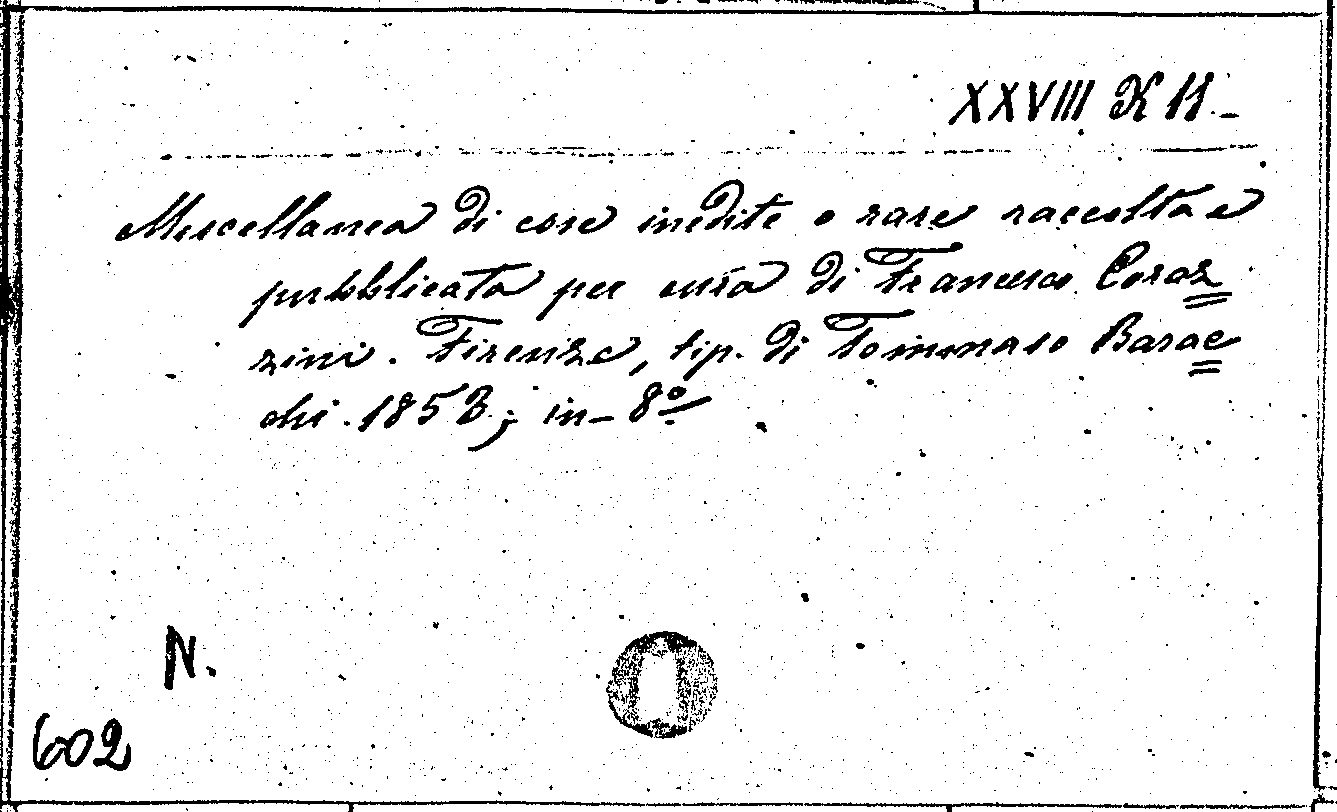 XXVIII K 11.-
Miscellanea di cose inedite o rare raccolta e
pubblicata per cura di Francesco Coraz=
zini. Firenze, tip. di Tommaso Barac=
chi. 1853; in-8º
N.
602